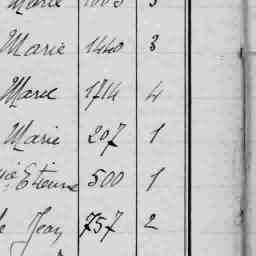 Marie 1003 3
Marie 1440 3
Marcel 1714 4
Marie 207 1
Etienne 500 1
Jean 757 2